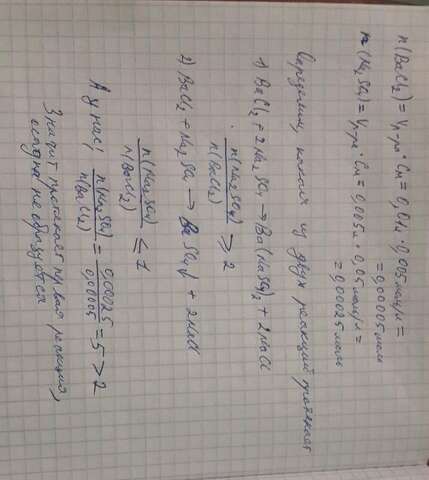 n(BaCl₂) = Vр-ра · Cм = 0,01л · 0,005 моль/л =
= 0,00005 моль
n(Na₂SO₄) = Vр-ра · Cм = 0,005л · 0,05 моль/л =
= 0,00025 моль
Определим, какая из двух реакций протекает
1) BaCl₂ + 2Na₂SO₄ → Ba(NaSO₄)₂ + 2NaCl
n(Na₂SO₄)
n(BaCl₂) ≥ 2
2) BaCl₂ + Na₂SO₄ → BaSO₄↓ + 2NaCl
n(Na₂SO₄)
n(BaCl₂) ≤ 1
А у нас: n(Na₂SO₄) / n(BaCl₂) = 0,00025 / 0,00005 = 5 > 2
Значит протекает первая реакция,
осадка не образуется